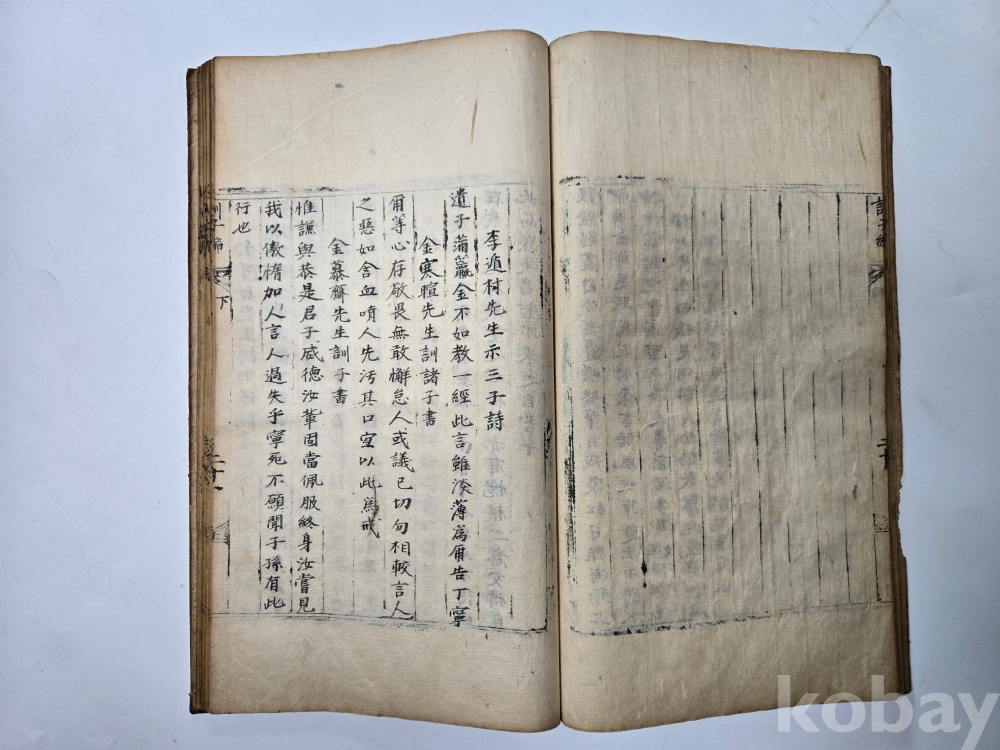 李遁村先生示三子詩
遺子滿籯金不如教一經此言雖淺薄爲爾告丁寧
金寒暄先生訓諸子書
爾等心存敬畏無敢懈怠人或議己切勿相較言人
之惡如含血噴人先汚其口宜以此爲戒
金慕齋先生訓子書
惟謙與恭是君子威德汝鞏固當佩服終身汝嘗見
我以傲惰加人言人過失乎寧死不願聞子孫有此
行也
訓子編 下
kobay